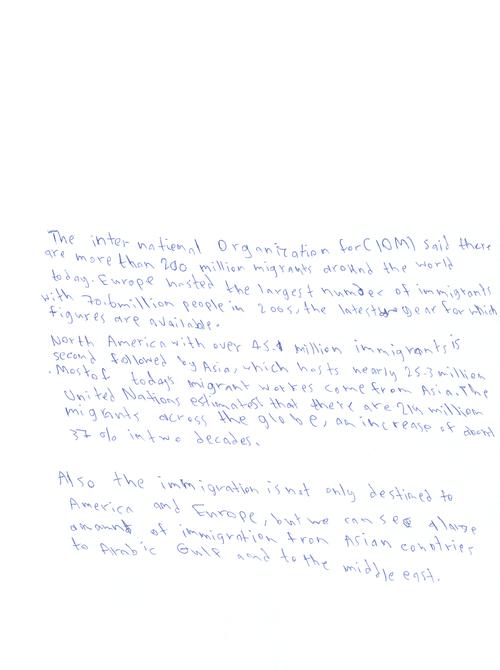 The international Organization for (IOM) said there
are more than 200 million migrants around the world
today. Europe hosted the largest number of immigrants
with 70.6million people in 2005, the latest year for which
figures are available.
North America with over 45.1 million immigrants is
second followed by Asia, which hosts nearly 25.3 million
. Most of todays migrant workes come from Asia. The
United Nations estimatest that there are 214 million
migrants across the globe, an increase of about
37 % in two decades.
Also the immigration is not only destined to
America and Europe, but we can see a large
amount of immigration from Asian countries
to Arabic Gulf and to the middle east.